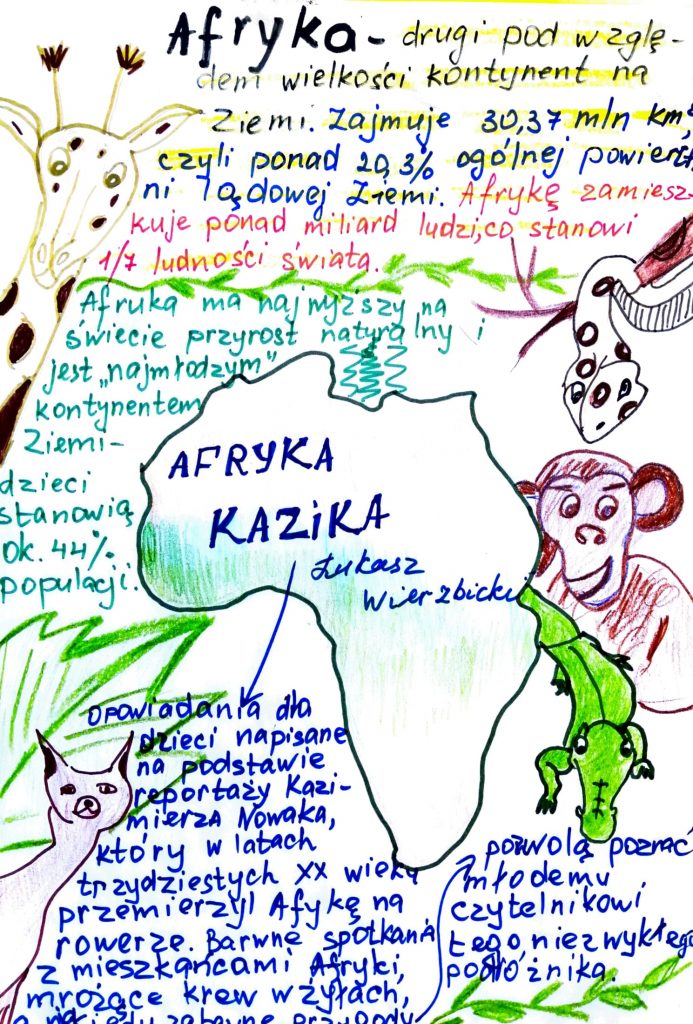 Afryka - drugi pod wzglę-
dem wielkości kontynent na
Ziemi. Zajmuje 30,37 mln km²,
czyli ponad 20,3% ogólnej powierzch
ni lądowej Ziemi. Afrykę zamiesz-
kuje ponad miliard ludzi, co stanowi
1/7 ludności świata.
Afryka ma najwyższy na
świecie przyrost naturalny i
jest „najmłodszym"
kontynentem
Ziemi-
dzieci
stanowią
ok. 44%
populacji.
AFRYKA
KAZIKA
Łukasz
Wierzbicki
Opowiadania dla
dzieci napisane
na podstawie
reportaży Kazi-
mierza Nowaka,
który w latach
trzydziestych XX wieku
przemierzył Afykę na
rowerze. Barwne spotkania
z mieszkańcami Afryki,
mrożące krew w żyłach,
zabawne przygody
pozwolą poznać
młodemu
czytelnikowi
tego niezwykłego
podróżnika.